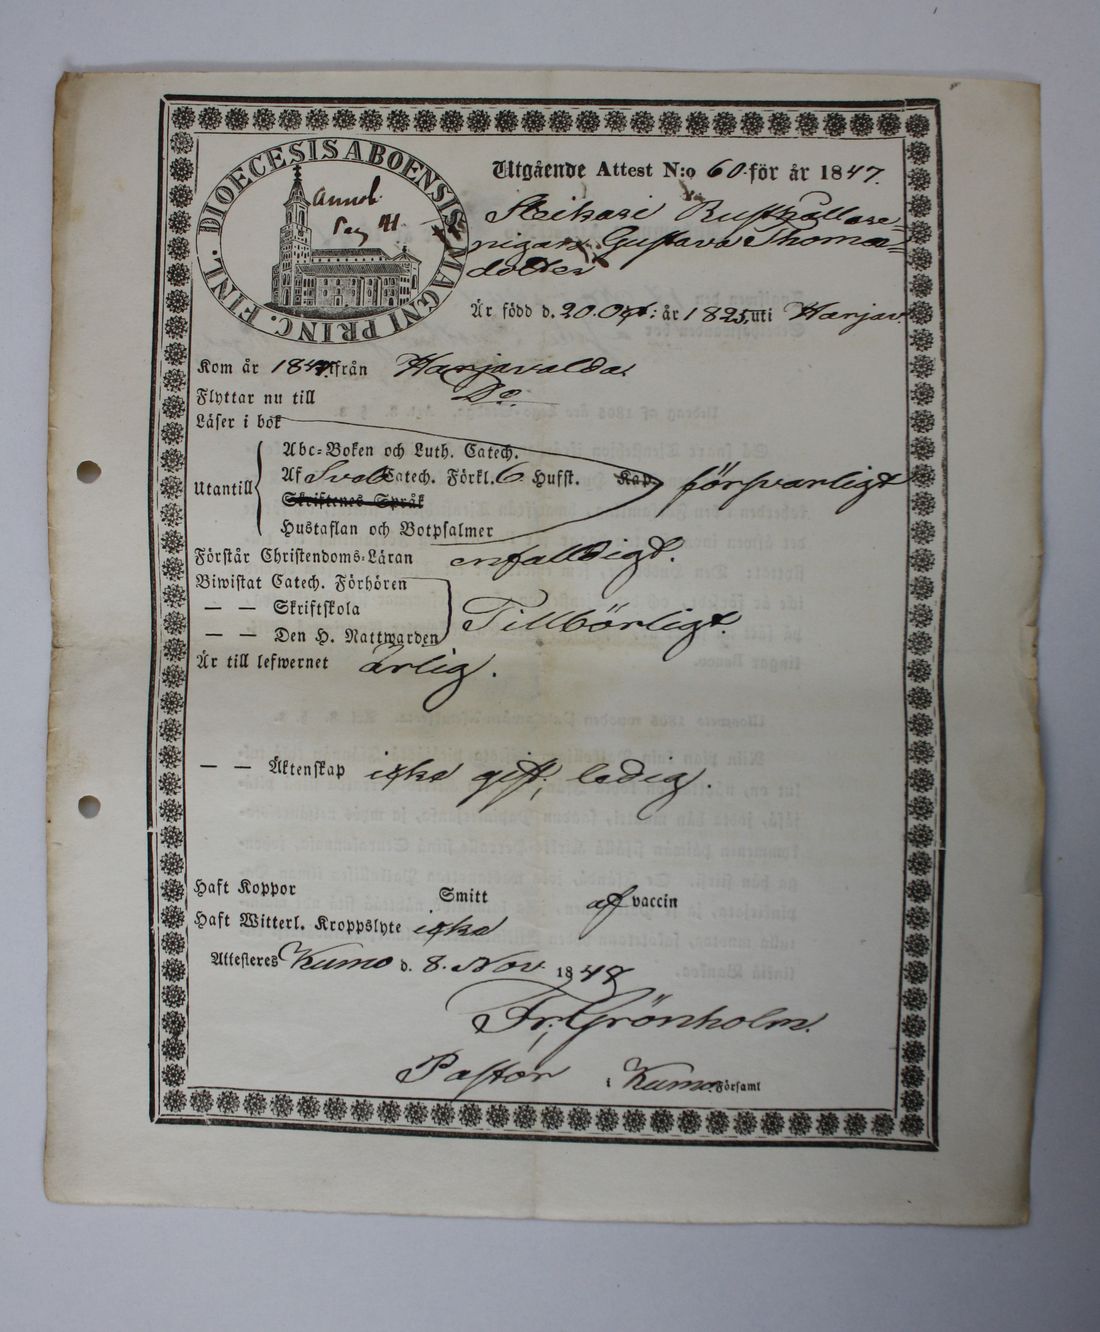 DIOECESIS ABOENSIS MAGNI PRINC. FINL.
Annot.
Pag 41.
Utgående Attest N:o 60. för år 1847.
Rusthållare
pigan Gustava Thomæ
dotter
Är född d. 20. Oct: år 1825 uti Harjav.
Kom år 184 från Harjavalda.
Flyttar nu till Do
Läser i bok
Utantill
Abc-Boken och Luth. Catech.
Af Sveb Catech. Förkl. 6 Hufst. Kap. försvarligt
Skriftenes Språk
Hustaflan och Botpsalmer
Förstår Christendoms-Läran enfalldigt.
Biwistat Catech. Förhören
— — Skriftskola
— — Den H. Nattwarden Tillbörligt.
Är till lefwernet ärlig.
— — Äktenskap icke gift, ledig.
Haft Koppor Smitt af vaccin
Haft Witterl. Kroppslyte icke
Attesteres Kumo d. 8. Nov. 184
Fr. Grönholm.
Pastor i Kumo Församl